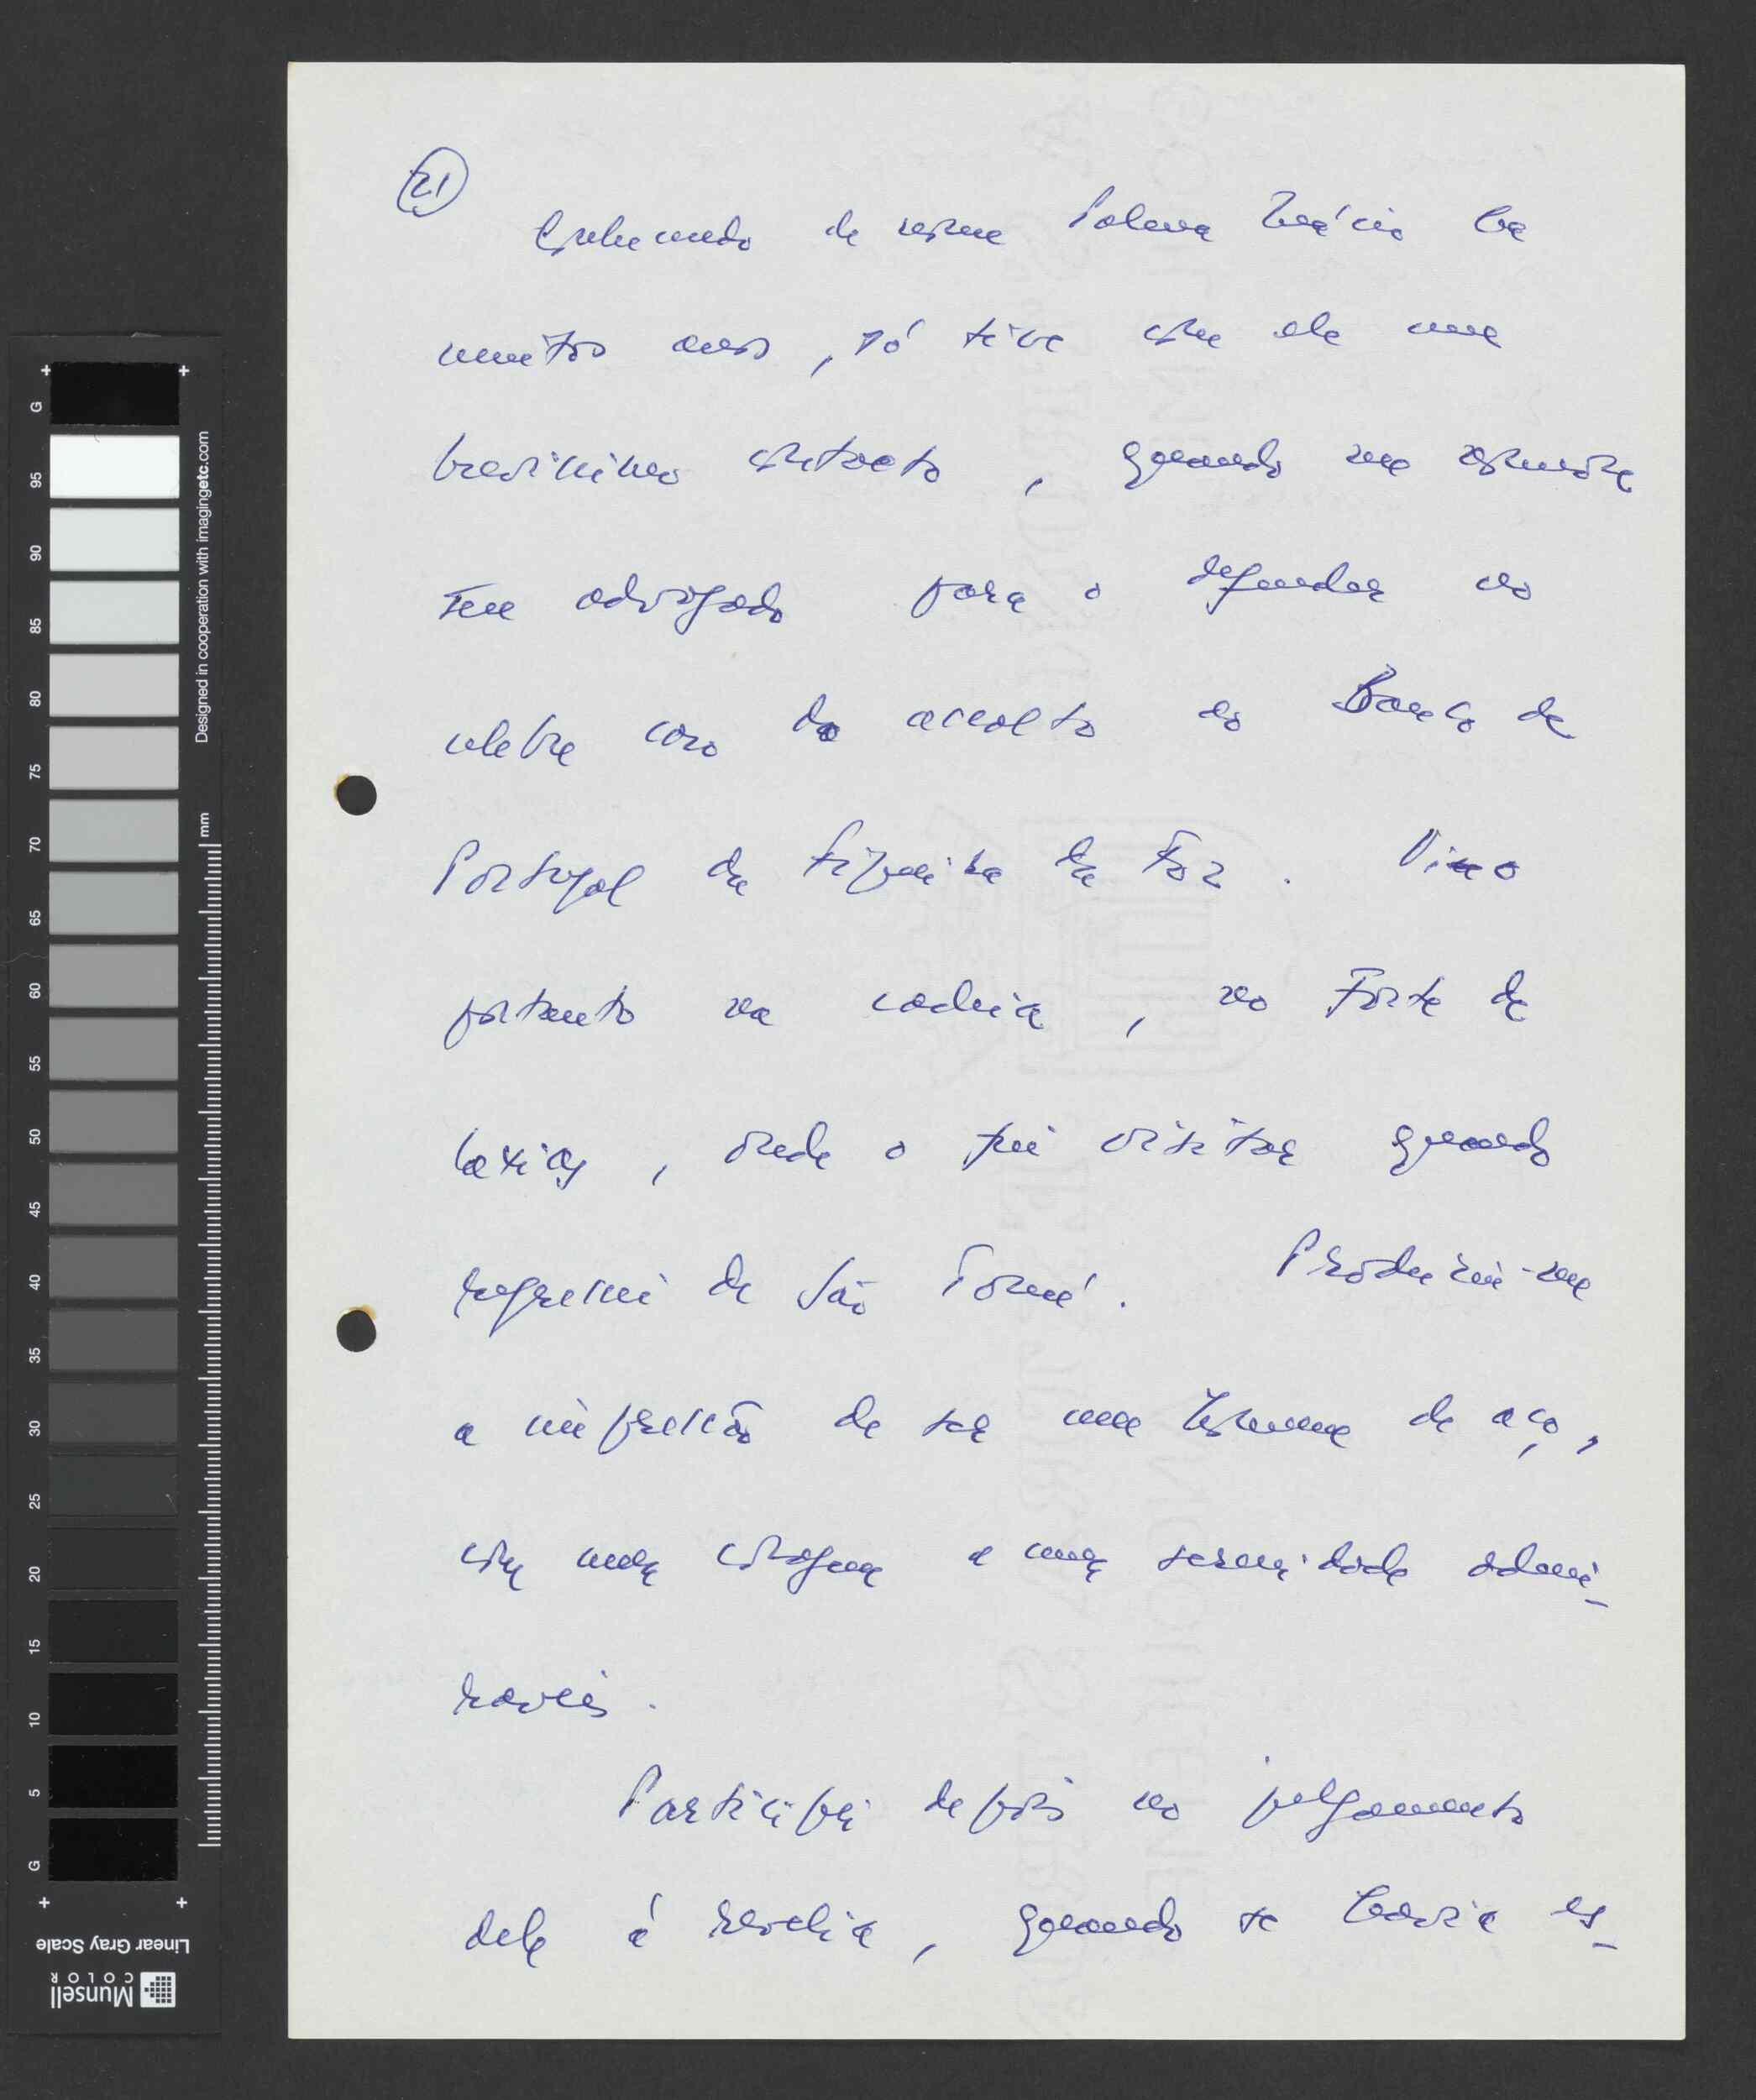 21
Conhecendo de nome Palma Inácio há
muitos anos, só tive com ele um
brevíssimo contacto, quando me nomeou
seu advogado para o defender no
célebre caso do assalto ao Banco de
Portugal da Figueira da Foz. Vi-o
portanto na cadeia, no Forte de
Caxias, onde o fui visitar quando
regressei de São Tomé. Produziu-me
a impressão de ser um homem de aço,
com uma coragem e uma serenidade admi-
ráveis.
Participei depois no julgamento
dele à revelia, quando se havia es-
G 95 90 85 80 75 70 65 60 55 50 45 40 35 30 25 20 15 10 5 G
mm
Designed in cooperation with imagingetc.com
Linear Gray Scale
Munsell
COLOR